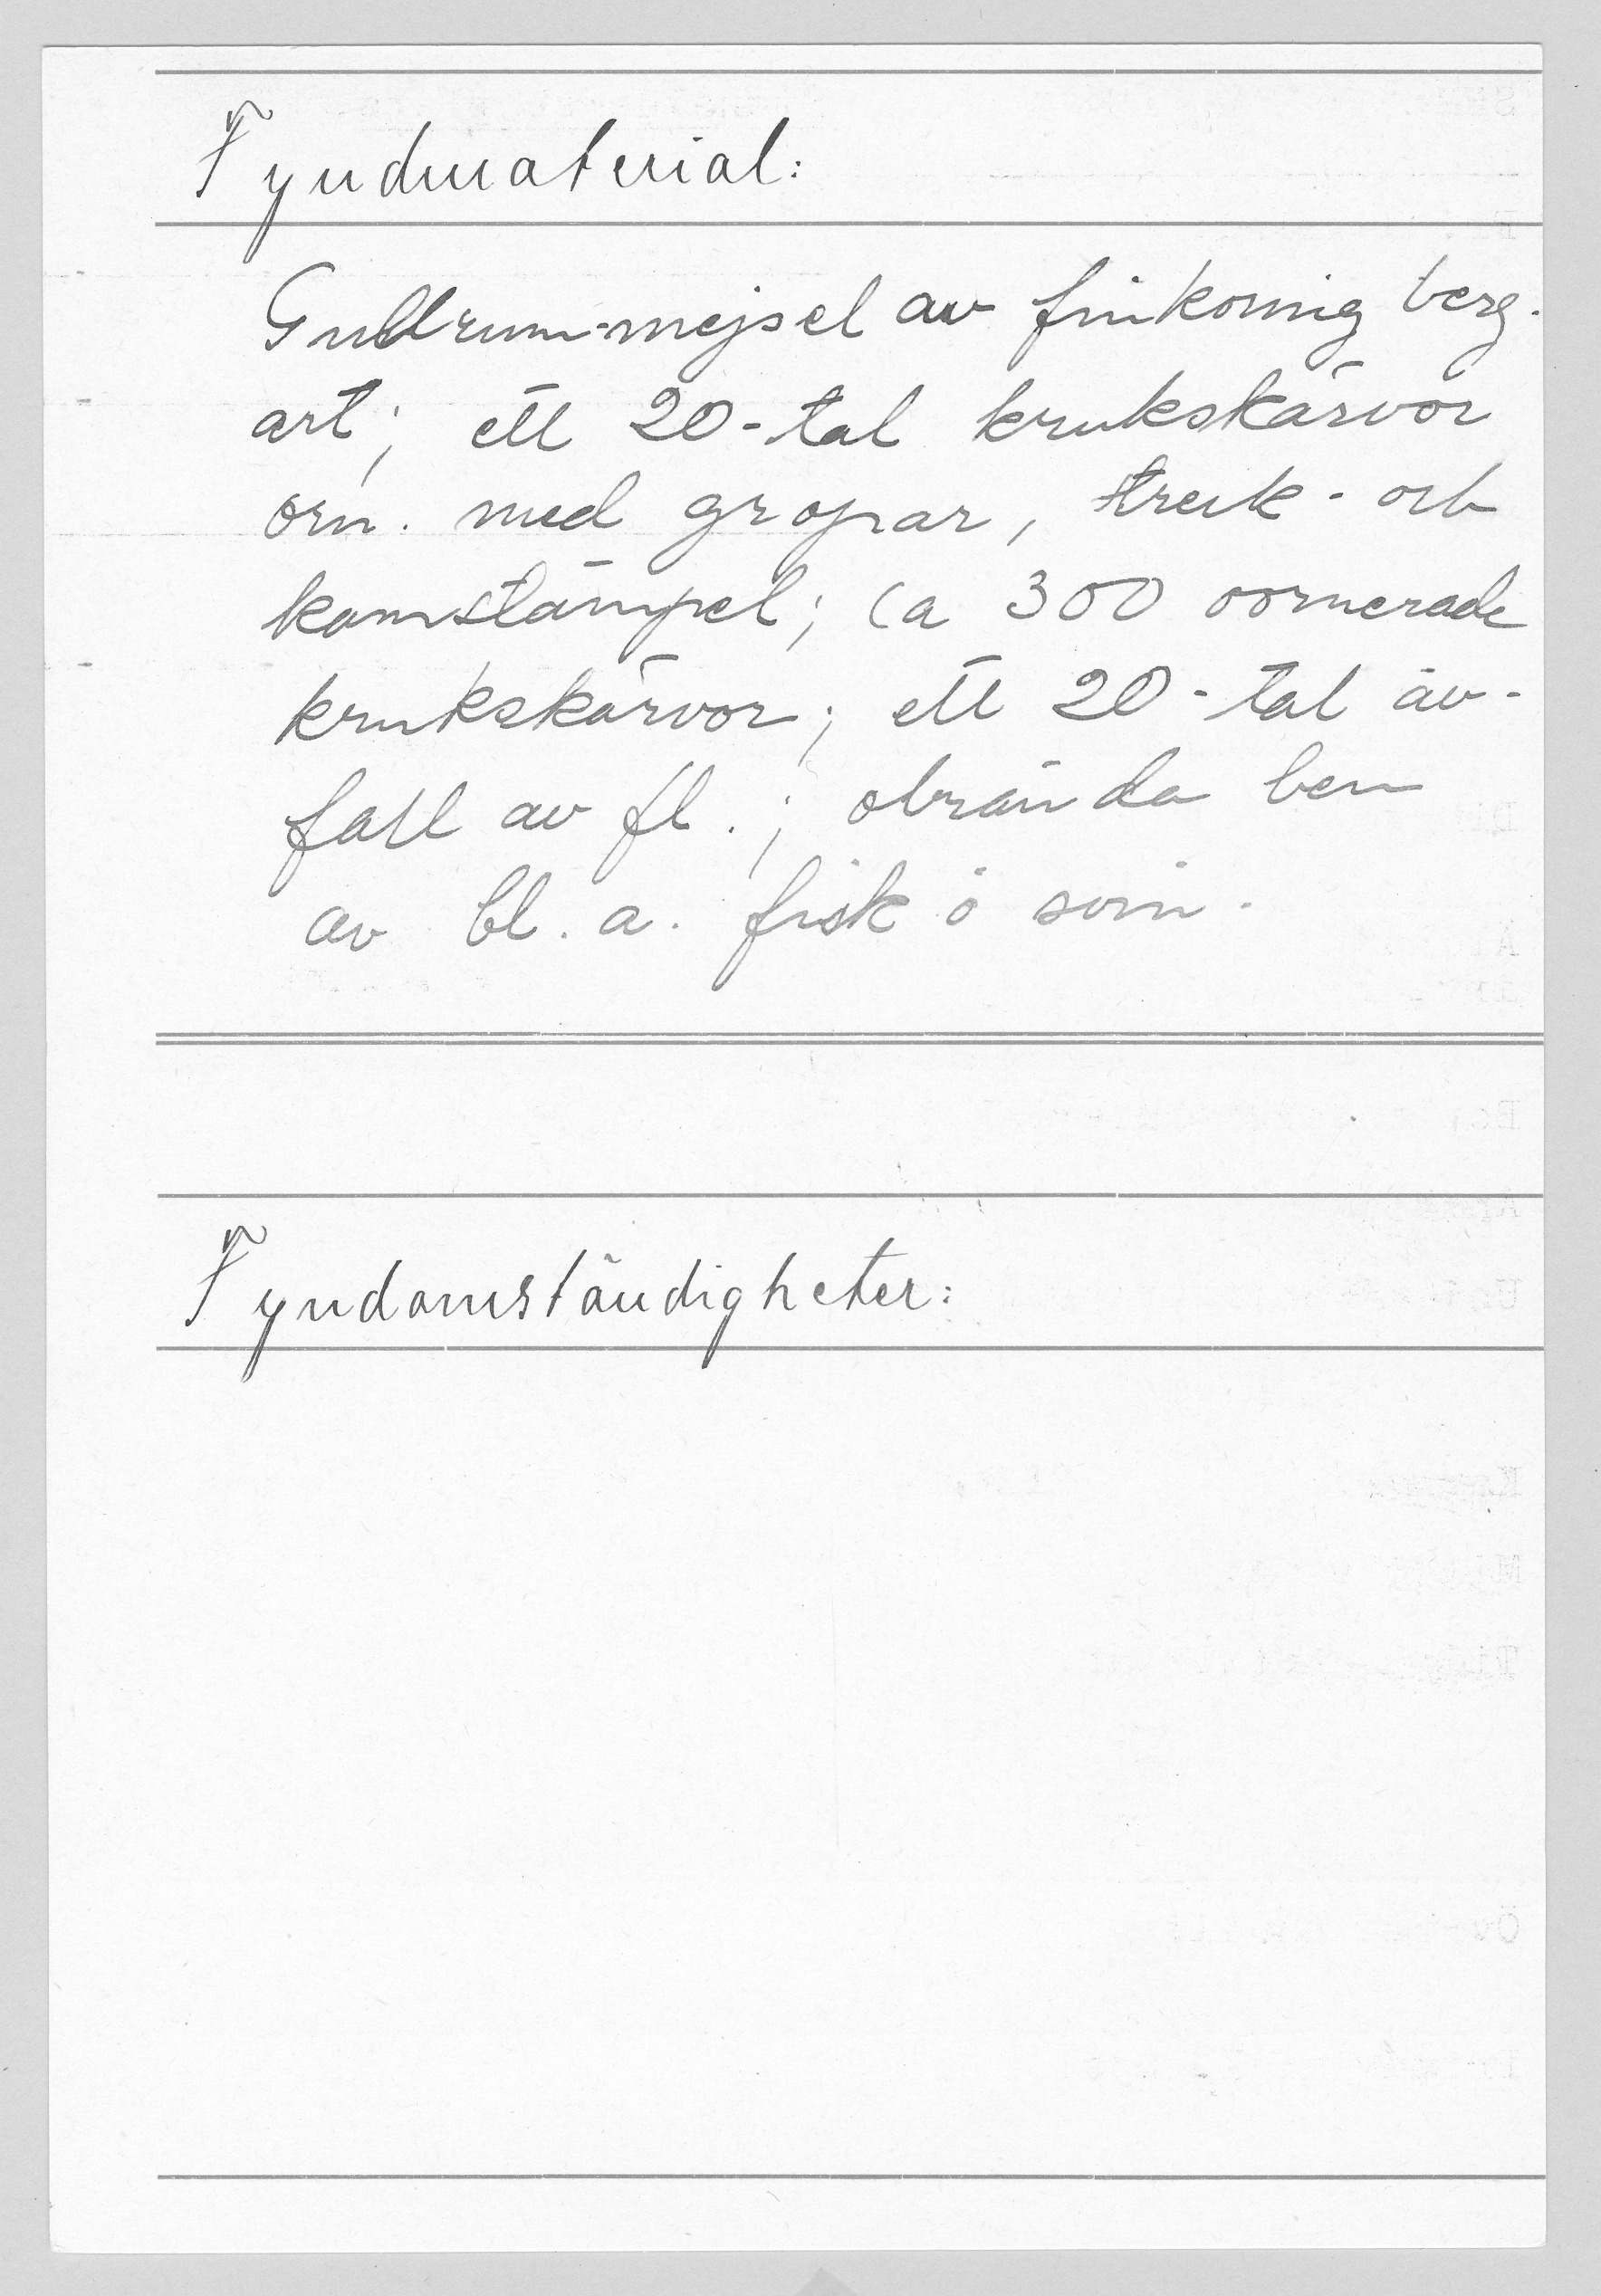 Fyndmaterial:
Gullrum-mejsel av finkornig berg-
art; ett 20-tal krukskärvor
orn. med gropar, streck- och
kamstämpel; ca 300 oornerade
krukskärvor; ett 20-tal av-
fall av fl.; obrända ben
av bl. a. fisk o svin.
Fyndomständigheter: